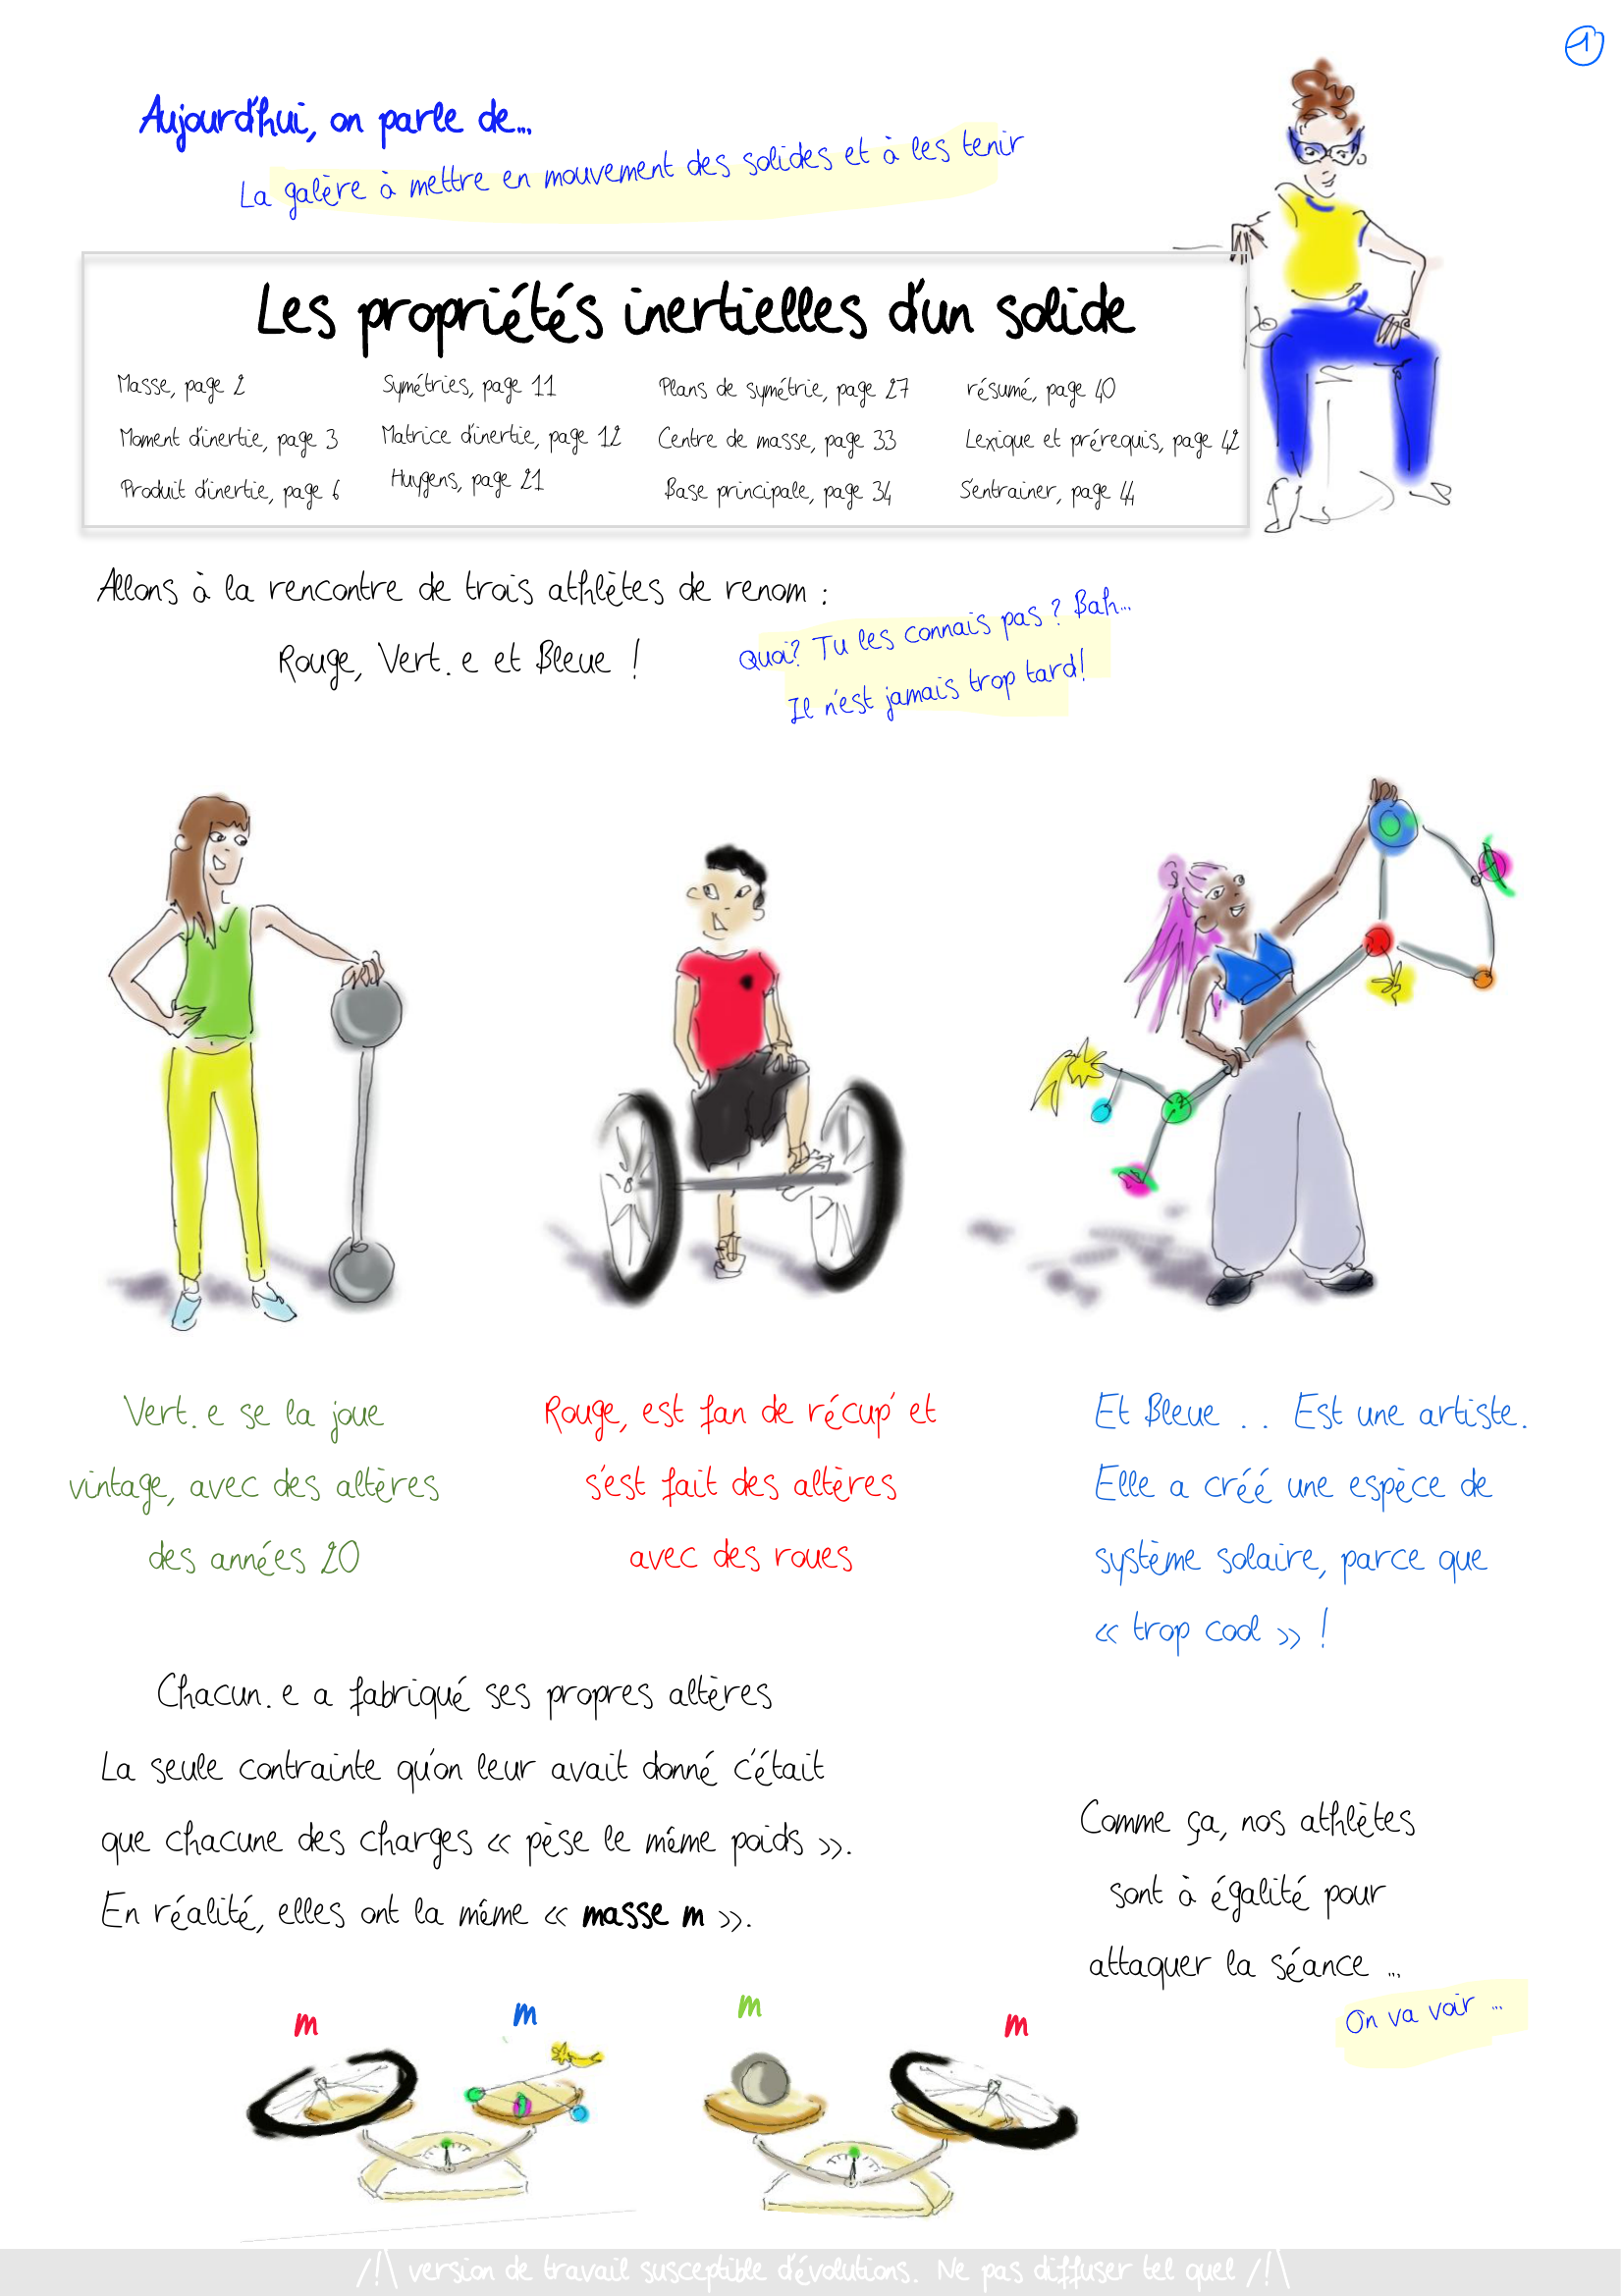 1
Aujourd'hui, on parle de...
La galère à mettre en mouvement des solides et à les tenir
Les propriétés inertielles d'un solide
Masse, page 2
Moment d'inertie, page 3
Produit d'inertie, page 6
Symétries, page 11
Matrice d'inertie, page 12
Huygens, page 21
Plans de symétrie, page 27
Centre de masse, page 33
Base principale, page 34
résumé, page 40
Lexique et prérequis, page 42
S'entrainer, page 44
Allons à la rencontre de trois athlètes de renom :
Rouge, Vert. e et Bleue !
Quoi? Tu les connais pas ? Bah...
Il n'est jamais trop tard!
Vert. e se la joue
vintage, avec des altères
des années 20
Rouge, est fan de récup' et
s'est fait des altères
avec des roues
Et Bleue . . Est une artiste.
Elle a créé une espèce de
système solaire, parce que
« trop cool » !
Chacun. e a fabriqué ses propres altères
La seule contrainte qu'on leur avait donné c'était
que chacune des charges « pèse le même poids ».
En réalité, elles ont la même « masse m ».
Comme ça, nos athlètes
sont à égalité pour
attaquer la séance ...
On va voir ...
m
m
m
m
/!\ version de travail susceptible d'évolutions. Ne pas diffuser tel quel /!\